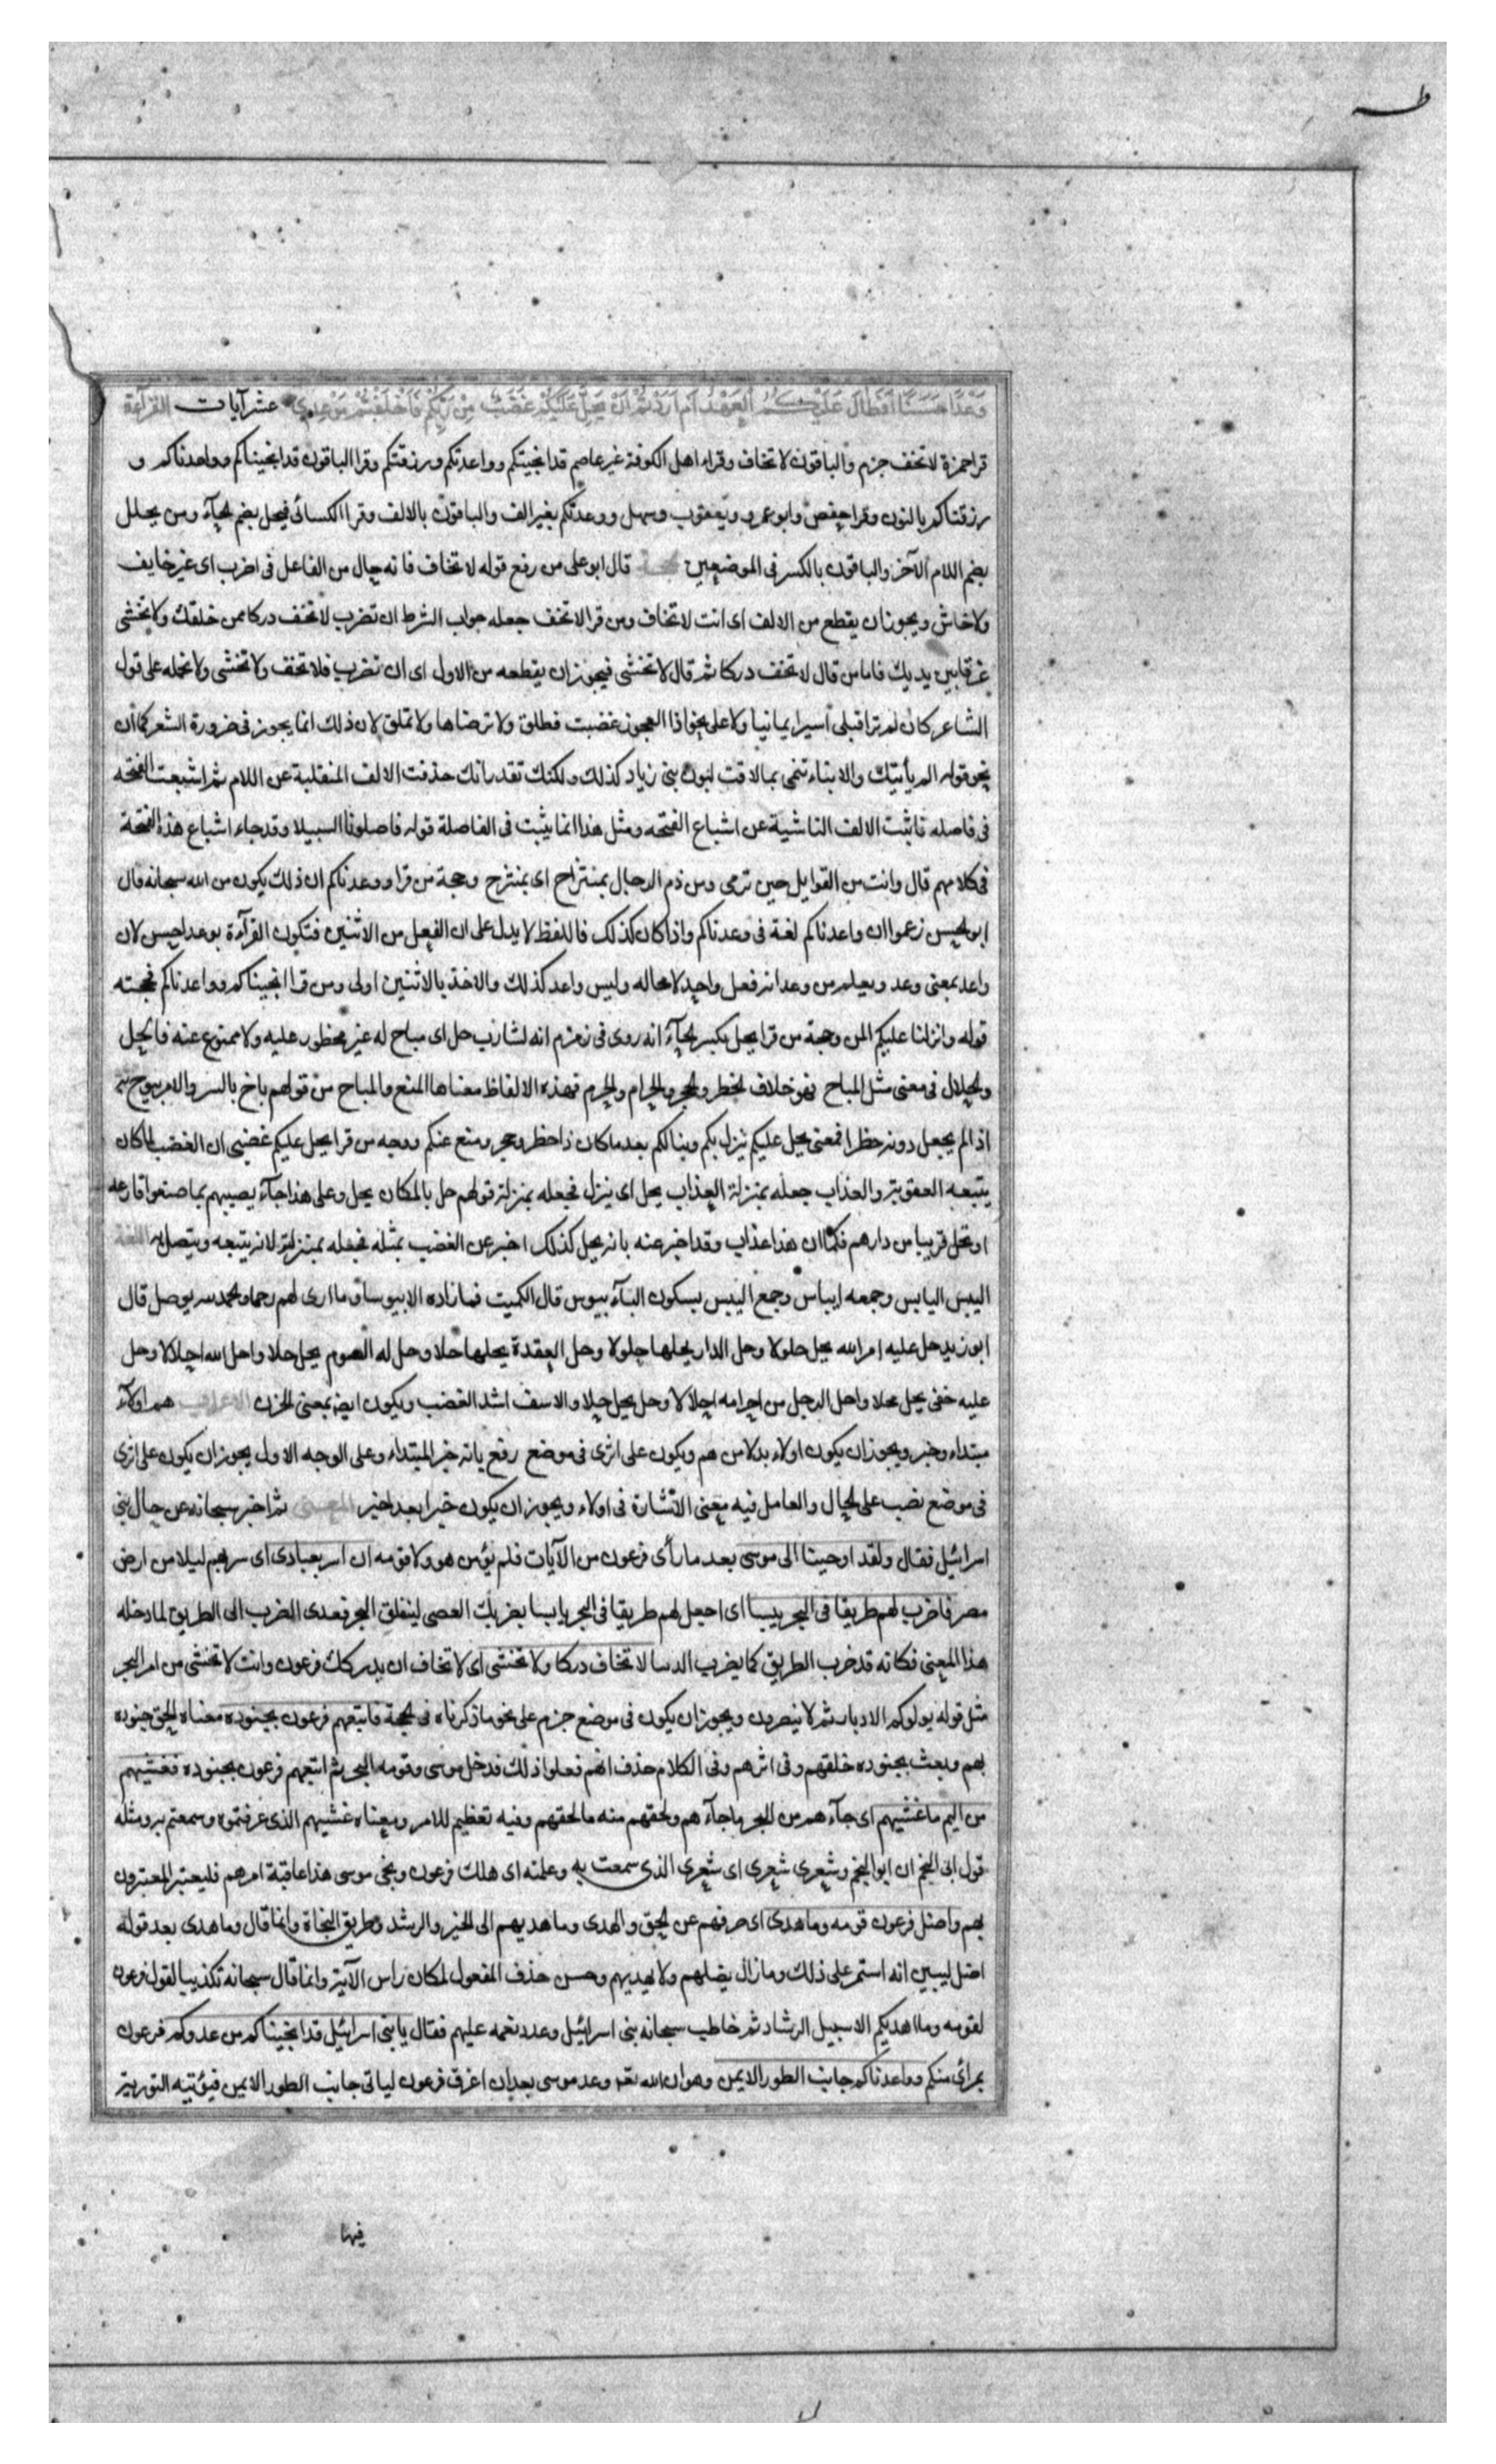 طه
وَعْدًا حَسَنًا أَفَطَالَ عَلَيْكُمُ الْعَهْدُ أَمْ أَرَدْتُمْ أَنْ يَحِلَّ عَلَيْكُمْ غَضَبٌ مِنْ رَبِّكُمْ فَأَخْلَفْتُمْ مَوْعِدِي عشر آيات القراءة
قرا حمزة لا تخف جزم والباقون لا تخاف وقراء اهل الكوفة غير عاصم قد انجيتكم وواعدتكم ورزقتكم وقرا الباقون قد انجيناكم وواعدناكم و
رزقناكم بالنون وقرا حفص وابو عمرو ويعقوب وسهل ووعدتكم بغير الف والباقون بالالف وقرا الكسائى فيحل بضم الحآء ومن يحلل
بضم اللام الآخر والباقون بالكسر فى الموضعين الحجة قال ابو على من رفع قوله لا تخاف فانه حال من الفاعل فى اضرب اى غير خايف
ولا خاش ويجوز ان يقطع من الالف اى انت لا تخاف ومن قرا لا تخف جعله جواب الشرط ان تضرب لا تخف دركا ممن خلفك ولا تخشى
غرقا بين يديك فاما من قال لا تخف دركا ثم قال لا تخشى فيجوز ان يقطعه من الاول اى ان تضرب فلا تخف ولا تخشى ولا تحمله على قول
الشاعر كان لم ترا قبلى اسيرا يمانيا ولا على نحو اذا العجوز غضبت فطلق ولا ترضاها ولا تملق لان ذلك انما يجوز فى ضرورة الشعر كما ان
نحو قوله الم يأتيك والانباء تنمى بما لاقت لبون بنى زياد كذلك ولكنك تقدر انك حذفت الالف المنقلبة عن اللام ثم اشبعت الفتحه
فى فاصله فاثبت الالف الناشية عن اشباع الفتحه ومثل هذا انما يثبت فى الفاصلة قوله فاضلونا السبيلا وقد جاء اشباع هذه الفتحة
فى كلامهم قال وانت من القوايل حين ترمى ومن ذم الرجال بمنتزاح اى بمنتزح وحجة من قرا ووعدناكم ان ذلك يكون من الله سبحانه قال
ابو الحسن زعموا ان واعدناكم لغة فى وعدناكم واذا كان كذلك فاللفظ لا يدل على ان الفعل من الاثنين فتكون القرآءة بوعد احسن لان
واعد بمعنى وعد ويعلم من وعد انه فعل واحد لا محاله وليس واعد كذلك والاخذ بالاثنين اولى ومن قرا انجيناكم وواعدناكم فحجته
قوله وانزلنا عليكم المن وحجة من قرا يحل بكسر الحآء انه روى فى زمزم انه لشارب حل اى مباح له غير محظور عليه ولا ممنوع عنه فالحل
والحلال فى معنى مثل المباح فهو خلاف الحظر والحجر والحرام والحرم فهذه الالفاظ معناها المنع والمباح من قولهم باخ بالسر والامر يبوح به
اذا لم يجعل دونه حظرا فمعنى يحل عليكم ينزل بكم وينالكم بعد ما كان ذا حظر وحجر ومنع عنكم ووجه من قرا يحل عليكم غضبى ان الغضب لما كان
يتبعه العقوبة والعذاب جعله بمنزلة العذاب يحل اى ينزل فجعله بمنزلة قولهم حل بالمكان يحل وعلى هذا جآء يصيبهم بما صنعوا قارعه
او تحل قريبا من دارهم فكما ان هذا عذاب وقد اخبر عنه بانه يحل كذلك اخبر عن الغضب بمثله فجعله بمنزلته لانه يتبعه ويتصل به اللغة
اليبس اليابس وجمعه ايباس وجمع اليبس بسكون البآء يبوس قال الكميت فما زاده الا يبوسا وما ارى لهم رحما والحمد لله يوصل قال
ابو زيد حل عليه امر الله يحل حلولا وحل الدار يحلها حلولا وحل العقدة يحلها حلا وحل له الصوم يحل حلا واحل الله احلالا وحل
عليه حقى يحل محلا واحل الرجل من احرامه احلالا وحل يحل حلا والاسف اشد الغضب ويكون ايضا بمعنى الحزن الاعراب هم اولآء
مبتداء وخبر ويجوز ان يكون اولاء بدلا من هم ويكون على اثرى فى موضع رفع بانه خبر المبتداء وعلى الوجه الاول يجوز ان يكون على اثرى
فى موضع نصب على الحال والعامل فيه معنى الاشارة فى اولاء ويجوز ان يكون خبرا بعد اخبر المعنى ثم اخبر سبحانه عن حال بنى
اسرائيل فقال ولقد اوحينا الى موسى بعد ما رأى فرعون من الآيات فلم يؤمن هو ولا قومه ان اسر بعبادى اى سر بهم ليلا من ارض
مصر فاضرب لهم طريقا فى البحر يبسا اى اجعل لهم طريقا فى البحر يابسا بضربك العصى لينفلق البحر فعدى الضرب الى الطريق لما دخله
هذا المعنى فكانه قد ضرب الطريق كما يضرب الدينار لا تخاف دركا ولا تخشى اى لا تخاف ان يدركك فرعون وانت لا تخشى من امر البحر
مثل قوله يولوكم الادبار ثم لا ينصرون ويجوز ان يكون فى موضع جزم على نحو ما ذكرناه فى الحجة فاتبعهم فرعون بجنوده معناه الحق جنوده
بهم وبعث بجنوده خلفهم وفى اثرهم وفى الكلام حذف انهم فعلوا ذلك فدخل موسى وقومه البحر ثم اتبعهم فرعون بجنوده فغشيهم
من اليم ما غشيهم اى جآءهم من البحر ما جآءهم ولحقهم منه ما لحقهم وفيه تعظيم للامر ومعناه غشيهم الذى عرفتموه وسمعتم به ومثله
قول ابى النجم ان ابو النجم وشعرى شعرى اى شعرى الذى سمعت به وعلمته اى هلك فرعون ونجى موسى هذا عاقبة امرهم فليعتبر المعتبرون
بهم واضل فرعون قومه وما هدى اى صرفهم عن الحق والهدى وما هديهم الى الخير والرشد وطريق النجاة وانما قال وما هدى بعد قوله
اضل ليبين انه استمر على ذلك وما زال يضلهم ولا يهديهم وحسن حذف المفعول لمكان راس الآية وانما قال سبحانه تكذيبا لقول فرعون
لقومه وما اهديكم الا سبيل الرشاد ثم خاطب سبحانه بنى اسرائيل وعدد نعمه عليهم فقال يا بنى اسرائيل قد انجيناكم من عدوكم فرعون
بمرائ منكم وواعدناكم جانب الطور الايمن وهو ان الله تعه وعد موسى بعد ان اغرق فرعون لياتى جانب الطور الايمن فيؤتيه التورية
فيها